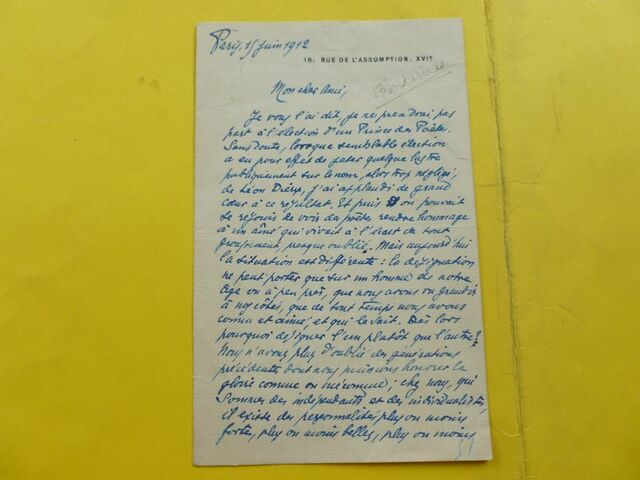 Paris, 15 juin 1912
16, RUE DE L'ASSOMPTION, XVIe
Mon cher Ami,
Je vous l'ai dit, je ne prendrai pas
part à l'élection d'un Prince des Poètes.
Sans doute, lorsque semblable élection
a eu pour effet de jeter quelque lustre
publiquement sur le nom, alors trop négligé,
de Léon Dierx, j'ai applaudi de grand
cœur à ce résultat. Et puis on pouvait
se réjouir de voir des poètes rendre hommage
à un aîné qui vivait à l'écart de tout
groupement, presque oublié. Mais aujourd'hui
la situation est différente : la désignation
ne peut porter que sur un homme de notre
âge ou à peu près, que nous avons vu grandir
à nos côtés, que de tout temps nous avons
connu et aimé, et qui le sait. Dès lors
pourquoi désigner l'un plutôt que l'autre ?
Nous n'avons plus d'oublié des générations
précédentes dont nous puissions honorer la
gloire comme on méconnue ; chez nous, qui
sommes des indépendants et des individualistes,
il existe des personnalités plus ou moins
fortes, plus ou moins belles, plus ou moins